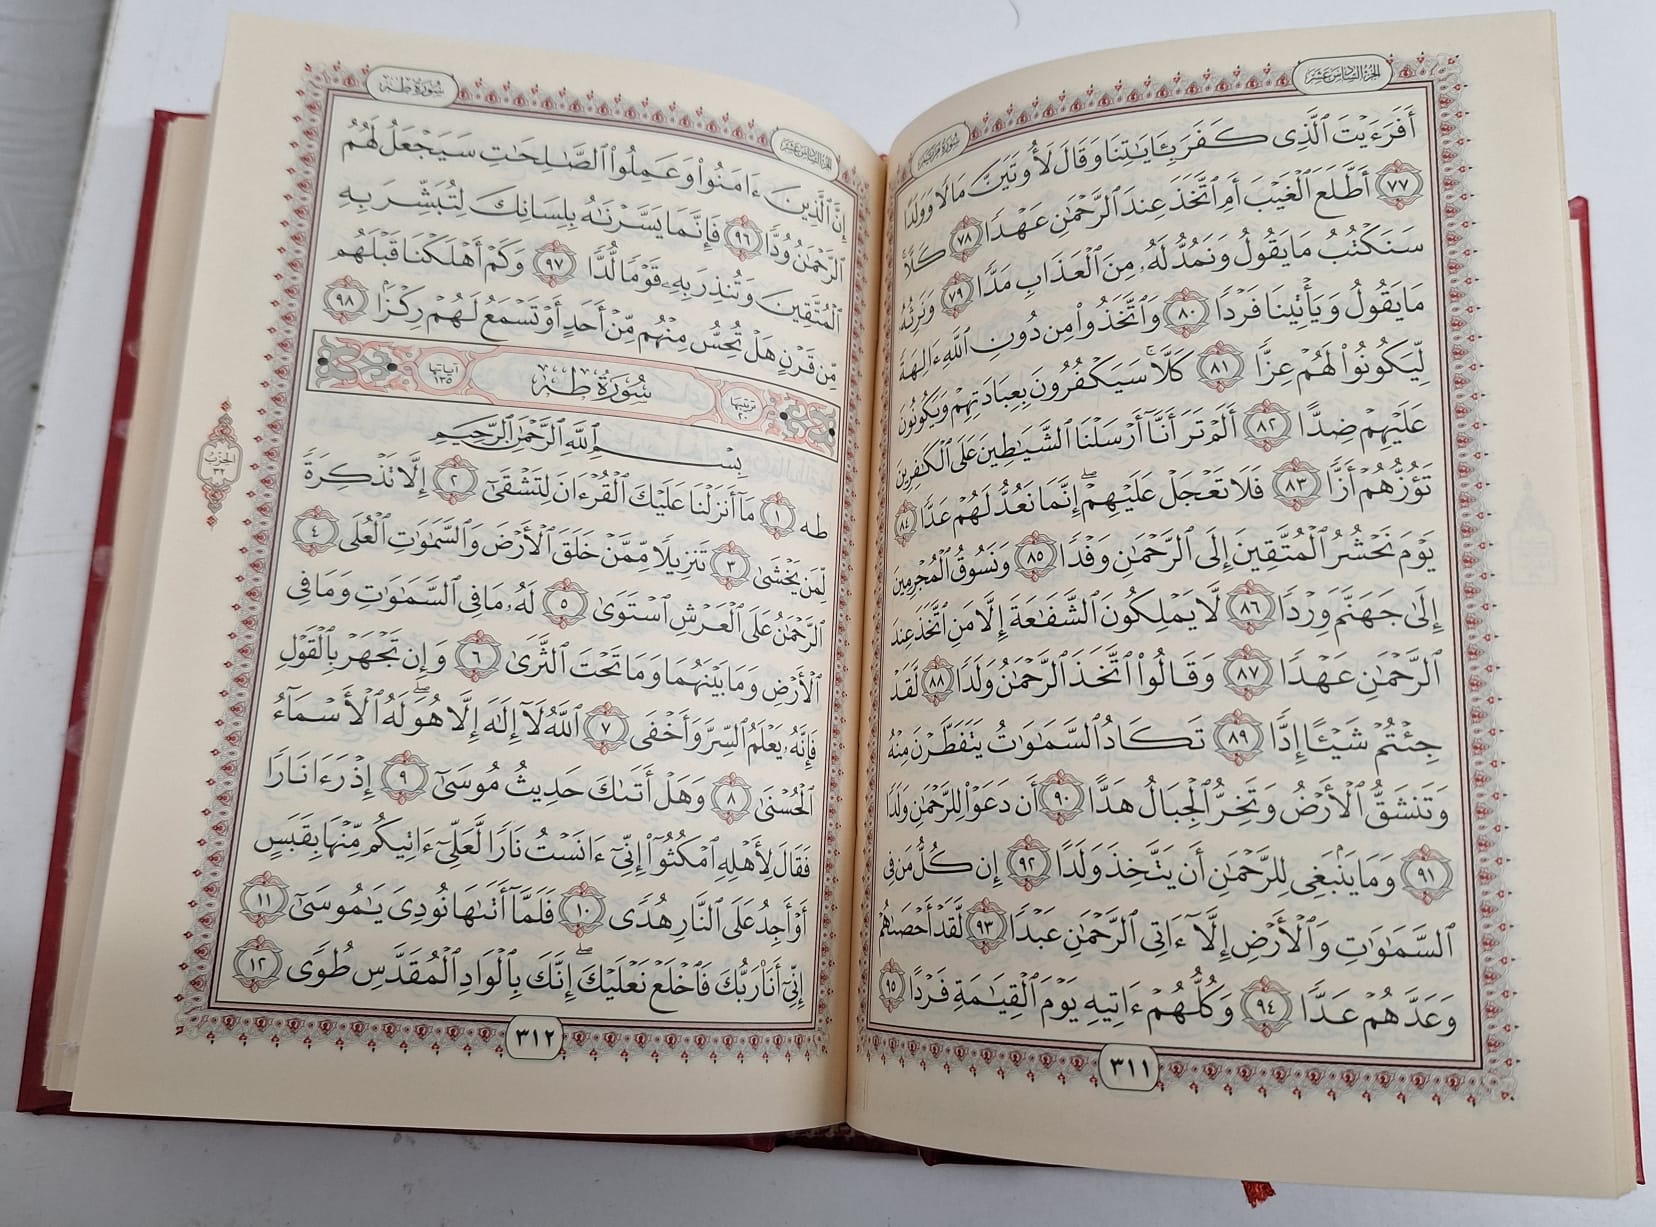 الجزء السادس عشر
سورة مريم
أَفَرَءَيْتَ ٱلَّذِى كَفَرَ بِـَٔايَٰتِنَا وَقَالَ لَأُوتَيَنَّ مَالًا وَوَلَدًا
٧٧ أَطَّلَعَ ٱلْغَيْبَ أَمِ ٱتَّخَذَ عِندَ ٱلرَّحْمَٰنِ عَهْدًا ٧٨ كَلَّا
سَنَكْتُبُ مَا يَقُولُ وَنَمُدُّ لَهُۥ مِنَ ٱلْعَذَابِ مَدًّا ٧٩ وَنَرِثُهُۥ
مَا يَقُولُ وَيَأْتِينَا فَرْدًا ٨٠ وَٱتَّخَذُوا۟ مِن دُونِ ٱللَّهِ ءَالِهَةً
لِّيَكُونُوا۟ لَهُمْ عِزًّا ٨١ كَلَّا ۚ سَيَكْفُرُونَ بِعِبَادَتِهِمْ وَيَكُونُونَ
عَلَيْهِمْ ضِدًّا ٨٢ أَلَمْ تَرَ أَنَّآ أَرْسَلْنَا ٱلشَّيَٰطِينَ عَلَى ٱلْكَٰفِرِينَ
تَؤُزُّهُمْ أَزًّا ٨٣ فَلَا تَعْجَلْ عَلَيْهِمْ ۖ إِنَّمَا نَعُدُّ لَهُمْ عَدًّا ٨٤
يَوْمَ نَحْشُرُ ٱلْمُتَّقِينَ إِلَى ٱلرَّحْمَٰنِ وَفْدًا ٨٥ وَنَسُوقُ ٱلْمُجْرِمِينَ
إِلَىٰ جَهَنَّمَ وِرْدًا ٨٦ لَّا يَمْلِكُونَ ٱلشَّفَٰعَةَ إِلَّا مَنِ ٱتَّخَذَ عِندَ
ٱلرَّحْمَٰنِ عَهْدًا ٨٧ وَقَالُوا۟ ٱتَّخَذَ ٱلرَّحْمَٰنُ وَلَدًا ٨٨ لَّقَدْ
جِئْتُمْ شَيْـًٔا إِدًّا ٨٩ تَكَادُ ٱلسَّمَٰوَٰتُ يَتَفَطَّرْنَ مِنْهُ
وَتَنشَقُّ ٱلْأَرْضُ وَتَخِرُّ ٱلْجِبَالُ هَدًّا ٩٠ أَن دَعَوْا۟ لِلرَّحْمَٰنِ وَلَدًا
٩١ وَمَا يَنۢبَغِى لِلرَّحْمَٰنِ أَن يَتَّخِذَ وَلَدًا ٩٢ إِن كُلُّ مَن فِى
ٱلسَّمَٰوَٰتِ وَٱلْأَرْضِ إِلَّآ ءَاتِى ٱلرَّحْمَٰنِ عَبْدًا ٩٣ لَّقَدْ أَحْصَىٰهُمْ
وَعَدَّهُمْ عَدًّا ٩٤ وَكُلُّهُمْ ءَاتِيهِ يَوْمَ ٱلْقِيَٰمَةِ فَرْدًا ٩٥
٣١١
الجزء السادس عشر
سورة طه
إِنَّ ٱلَّذِينَ ءَامَنُوا۟ وَعَمِلُوا۟ ٱلصَّٰلِحَٰتِ سَيَجْعَلُ لَهُمُ
ٱلرَّحْمَٰنُ وُدًّا ٩٦ فَإِنَّمَا يَسَّرْنَٰهُ بِلِسَانِكَ لِتُبَشِّرَ بِهِ
ٱلْمُتَّقِينَ وَتُنذِرَ بِهِۦ قَوْمًا لُّدًّا ٩٧ وَكَمْ أَهْلَكْنَا قَبْلَهُم
مِّن قَرْنٍ هَلْ تُحِسُّ مِنْهُم مِّنْ أَحَدٍ أَوْ تَسْمَعُ لَهُمْ رِكْزًۢا ٩٨
ترتيبها ٢٠ سورة طه آياتها ١٣٥
بِسْمِ ٱللَّهِ ٱلرَّحْمَٰنِ ٱلرَّحِيمِ
طه ١ مَآ أَنزَلْنَا عَلَيْكَ ٱلْقُرْءَانَ لِتَشْقَىٰٓ ٢ إِلَّا تَذْكِرَةً
لِّمَن يَخْشَىٰ ٣ تَنزِيلًا مِّمَّنْ خَلَقَ ٱلْأَرْضَ وَٱلسَّمَٰوَٰتِ ٱلْعُلَى ٤
ٱلرَّحْمَٰنُ عَلَى ٱلْعَرْشِ ٱسْتَوَىٰ ٥ لَهُۥ مَا فِى ٱلسَّمَٰوَٰتِ وَمَا فِى
ٱلْأَرْضِ وَمَا بَيْنَهُمَا وَمَا تَحْتَ ٱلثَّرَىٰ ٦ وَإِن تَجْهَرْ بِٱلْقَوْلِ
فَإِنَّهُۥ يَعْلَمُ ٱلسِّرَّ وَأَخْفَى ٧ ٱللَّهُ لَآ إِلَٰهَ إِلَّا هُوَ ۖ لَهُ ٱلْأَسْمَآءُ
ٱلْحُسْنَىٰ ٨ وَهَلْ أَتَىٰكَ حَدِيثُ مُوسَىٰٓ ٩ إِذْ رَءَا نَارًا
فَقَالَ لِأَهْلِهِ ٱمْكُثُوٓا۟ إِنِّىٓ ءَانَسْتُ نَارًا لَّعَلِّىٓ ءَاتِيكُم مِّنْهَا بِقَبَسٍ
أَوْ أَجِدُ عَلَى ٱلنَّارِ هُدًى ١٠ فَلَمَّآ أَتَىٰهَا نُودِىَ يَٰمُوسَىٰٓ ١١
إِنِّىٓ أَنَا۠ رَبُّكَ فَٱخْلَعْ نَعْلَيْكَ ۖ إِنَّكَ بِٱلْوَادِ ٱلْمُقَدَّسِ طُوًى ١٢
الحزب
٣٢
٣١٢